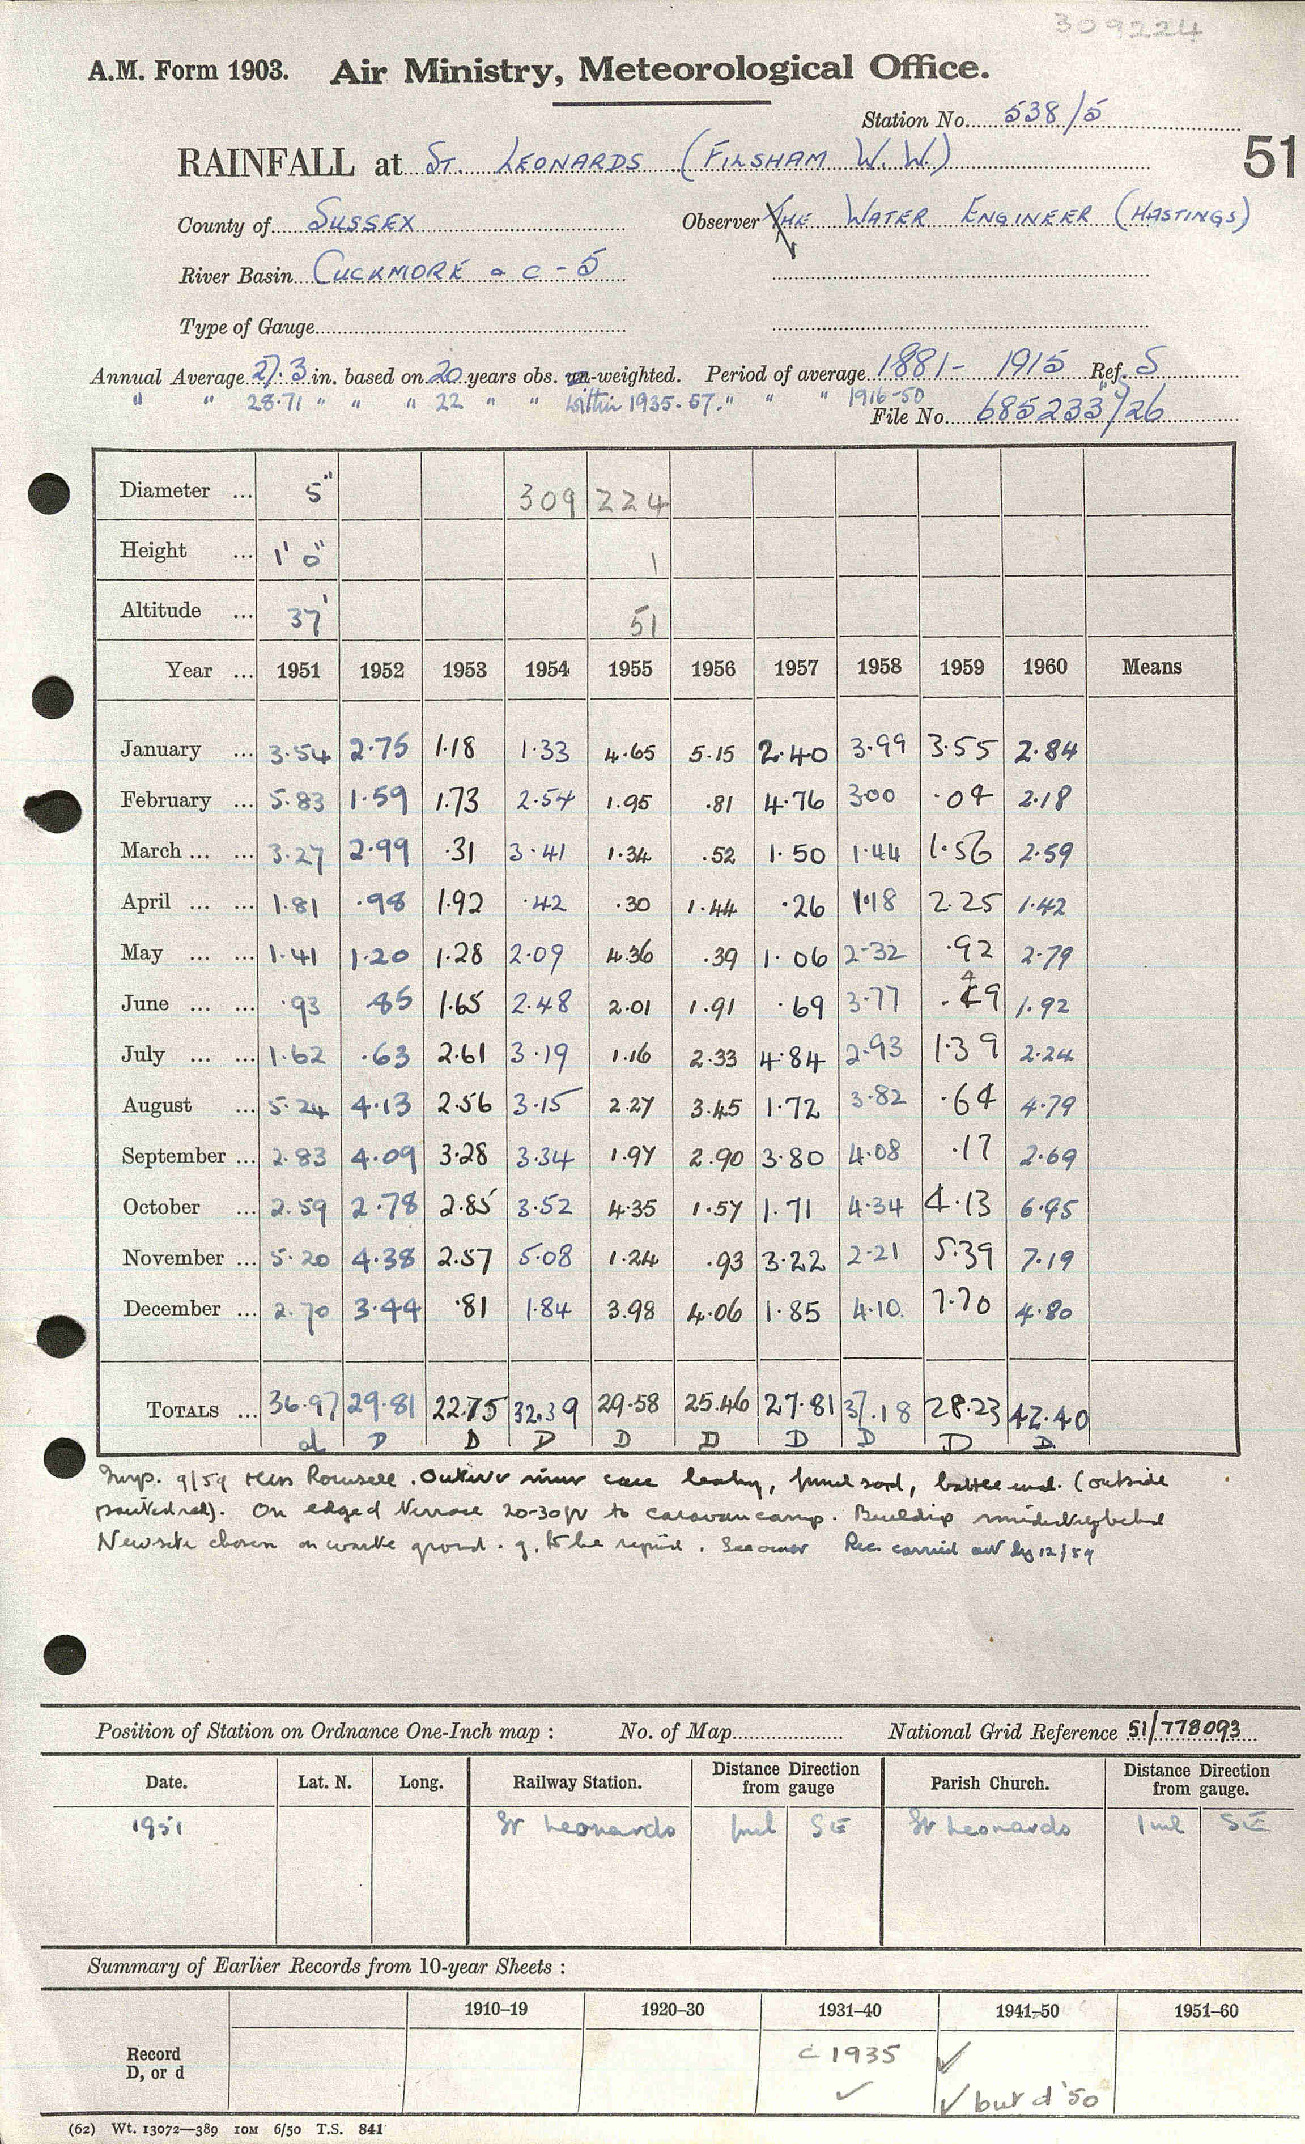 309224
A.M. Form 1903. Air Ministry, Meteorological Office.
Station No. 538/5
RAINFALL at ST. LEONARDS (FILSHAM W.W.) 51
County of SUSSEX Observer THE WATER ENGINEER (HASTINGS)
River Basin CUCKMORE &c - 5
Type of Gauge
Annual Average 27.3 in. based on 20 years obs. un-weighted. Period of average 1881 - 1915 Ref. S
" " 28.71 " " " 22 " " within 1935-57. " " " 1916-50 "
File No. 685233/26
Diameter ... 5" 309 224
Height ... 1' 0" 1
Altitude ... 37' 51
Year ... 1951 1952 1953 1954 1955 1956 1957 1958 1959 1960 Means
January ... 3.54 2.75 1.18 1.33 4.65 5.15 2.40 3.99 3.55 2.84
February ... 5.83 1.59 1.73 2.54 1.95 .81 4.76 3.00 .04 2.18
March ... ... 3.27 2.99 .31 3.41 1.34 .52 1.50 1.44 1.56 2.59
April ... ... 1.81 .98 1.92 .42 .30 1.44 .26 1.18 2.25 1.42
May ... ... 1.41 1.20 1.28 2.09 4.36 .39 1.06 2.32 .92 2.79
June ... ... .93 .85 1.65 2.48 2.01 1.91 .69 3.77 .49 1.92
July ... ... 1.62 .63 2.61 3.19 1.16 2.33 4.84 2.93 1.39 2.24
August ... 5.24 4.13 2.56 3.15 2.27 3.45 1.72 3.82 .64 4.79
September ... 2.83 4.09 3.28 3.34 1.97 2.90 3.80 4.08 .17 2.69
October ... 2.59 2.78 2.85 3.52 4.35 1.57 1.71 4.34 4.13 6.95
November ... 5.20 4.38 2.57 5.08 1.24 .93 3.22 2.21 5.39 7.19
December ... 2.70 3.44 .81 1.84 3.98 4.06 1.85 4.10 7.70 4.80
TOTALS ... 36.97 29.81 22.75 32.39 29.58 25.46 27.81 37.18 28.23 42.40
d D D D D D D D D D
Insp. 9/59 Miss Rowsell. Outer case leaky, funnel sound, bottle (outside
painted red). On edge of terrace 20-30 ft to caravan camp.
New site chosen on works ground. Rec. carried out by 12/59
Position of Station on Ordnance One-Inch map : No. of Map National Grid Reference 51/778093
Date. Lat. N. Long. Railway Station. Distance Direction from gauge Parish Church. Distance Direction from gauge.
1951 St Leonards 1 ml SE St Leonards 1 ml SE
Summary of Earlier Records from 10-year Sheets :
1910–19 1920–30 1931–40 1941–50 1951–60
Record
D, or d
c 1935 ✓
✓ ✓ but d '50
(62) Wt. 13072—389 10M 6/50 T.S. 841